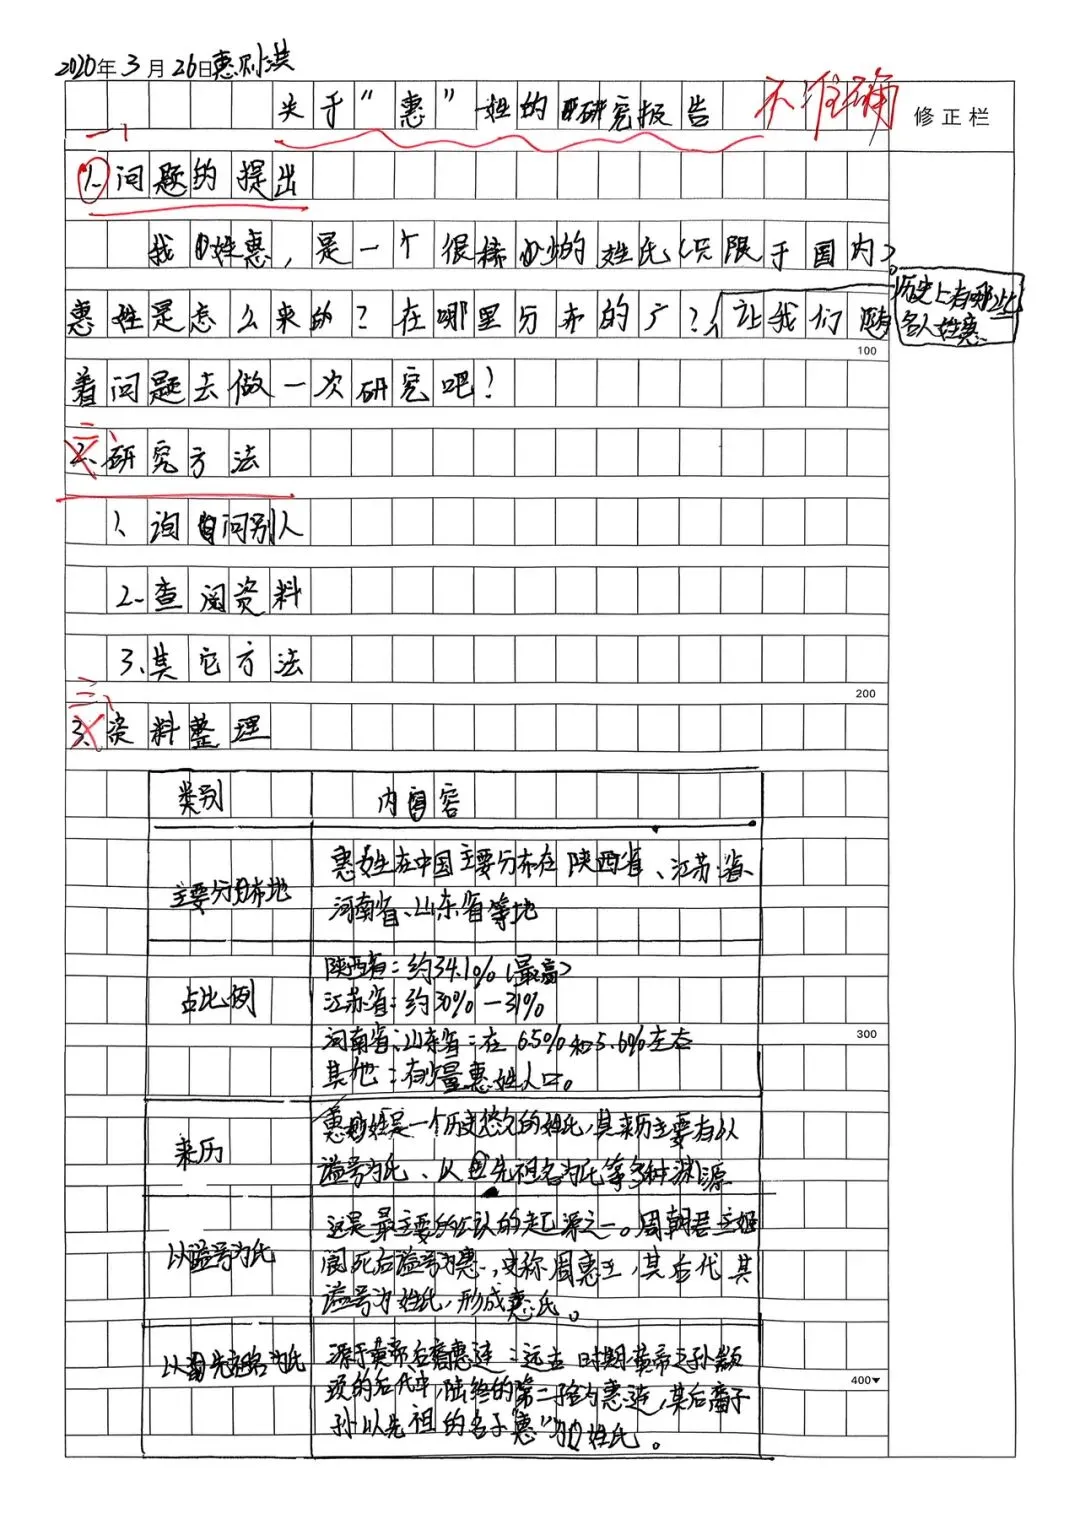 2020年3月26日惠则洪
关于“惠”姓的研究报告
不准确
修正栏
一、
1、问题的提出
我姓惠，是一个很稀少的姓氏（只限于国内）。
惠姓是怎么来的？在哪里分布的广？让我们随
历史上有哪些
名人姓惠
100
着问题去做一次研究吧！
二、
2、研究方法
1、询问别人
2、查阅资料
3、其它方法
200
三、
3、资料整理
类别 内容
主要分布地
惠姓在中国主要分布在陕西省、江苏省、
河南省、山东省等地
占比例
陕西省：约34.1%（最高）
江苏省：约30%—31%
河南省、山东省：在6.5%和5.6%左右
300
其他：有少量惠姓人口。
来历
惠姓是一个历史悠久的姓氏，其来历主要有以
谥号为氏、以先祖名为氏等多种渊源
以谥号为氏
这是最主要的公认的起源之一。周朝君主姬
阆死后谥号为惠，史称周惠王，其后代其
谥号为姓氏，形成惠氏。
以先祖名为氏
源于黄帝后裔惠连：远古时期黄帝之孙颛
顼的后代中，陆终的第二子名为惠连，其后裔子
400
孙以先祖的名字“惠”为姓氏。